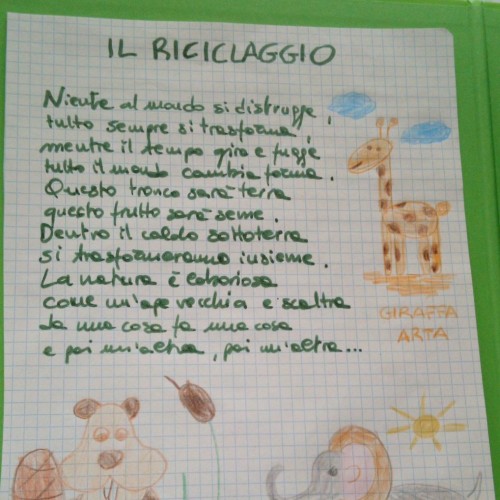 IL RICICLAGGIO
Niente al mondo si distrugge,
tutto sempre si trasforma,
mentre il tempo gira e fugge
tutto il mondo cambia forma.
Questo tronco sarà terra
questo frutto sarà seme.
Dentro il caldo sottoterra
si trasformeranno insieme.
La natura è laboriosa
come un'ape vecchia e scaltra
da una cosa fa una cosa
e poi un'altra, poi un'altra...
GIRAFFA
ARTA